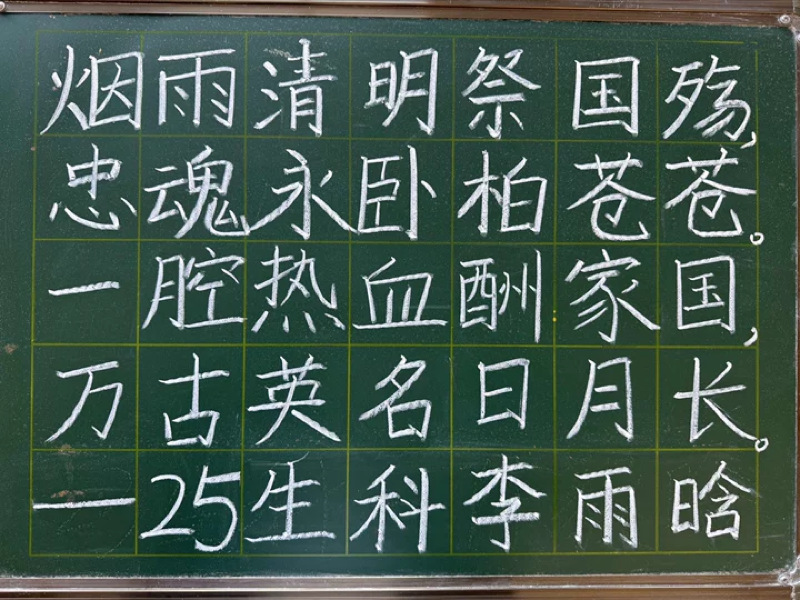 烟雨清明祭国殇,
忠魂永卧柏苍苍。
一腔热血酬家国,
万古英名日月长。
—25生科李雨晗